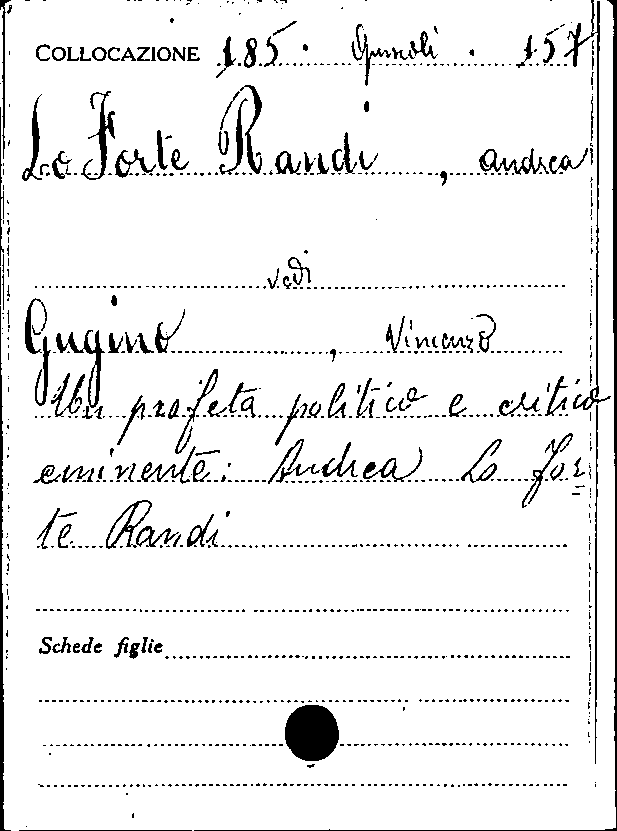 COLLOCAZIONE 185 · Opuscoli · 157
Lo Forte Randi, Andrea
vedi
Gugino, Vincenzo
Un profeta politico e critico
eminente: Andrea Lo For=
te Randi
Schede figlie